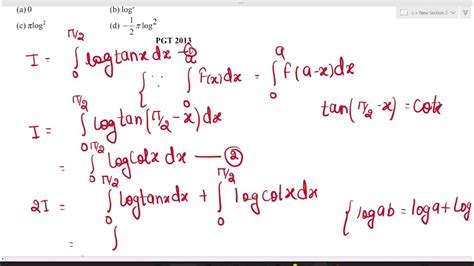 x + New Section 2
(a) 0 (b) logπ
(c) πlog2 (d) -1/2 πlog2
PGT 2013
I = ∫₀^(π/2) log tanx dx — ①
{∵ ∫₀^a f(x)dx = ∫₀^a f(a-x)dx
I = ∫₀^(π/2) log tan(π/2 - x)dx
tan(π/2 - x) = cotx
= ∫₀^(π/2) log cotx dx — ②
2I = ∫₀^(π/2) log tanx dx + ∫₀^(π/2) log cotx dx
{log ab = log a + log
= ∫